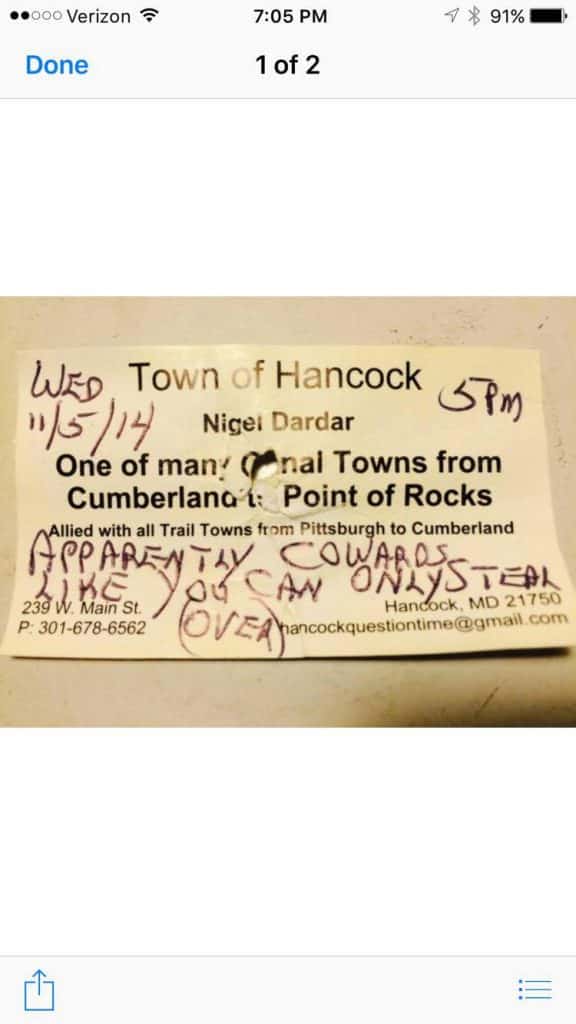 Verizon 7:05 PM 91%
Done 1 of 2
WED Town of Hancock 5PM
11/5/14 Nigel Dardar
One of many Canal Towns from
Cumberland to Point of Rocks
Allied with all Trail Towns from Pittsburgh to Cumberland
APPARENTLY COWARDS
LIKE YOU CAN ONLY STEAL
239 W. Main St. Hancock, MD 21750
P: 301-678-6562 (OVER) hancockquestiontime@gmail.com